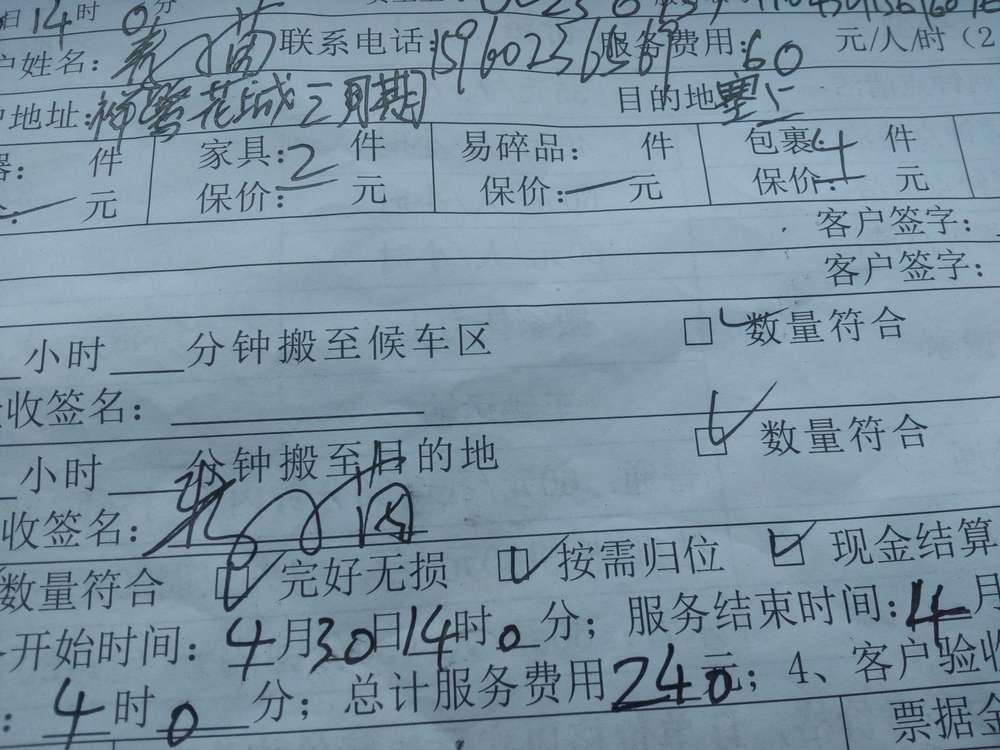 日14时0分
户姓名: 联系电话:15960236569 服务费用:60 元/人/时(2
户地址: 花城三期 目的地
器: 件 家具:2 件 易碎品: 件 包裹:4 件
元 保价: 元 保价: 元 保价: 元
客户签字:
客户签字:
小时 分钟搬至候车区 □✓数量符合
收签名:
小时 分钟搬至目的地 □✓数量符合
收签名:
数量符合 □✓完好无损 □✓按需归位 □✓现金结算
开始时间:4月30日14时0分;服务结束时间:4月
:4时0分;总计服务费用240元;4、客户验收
票据金